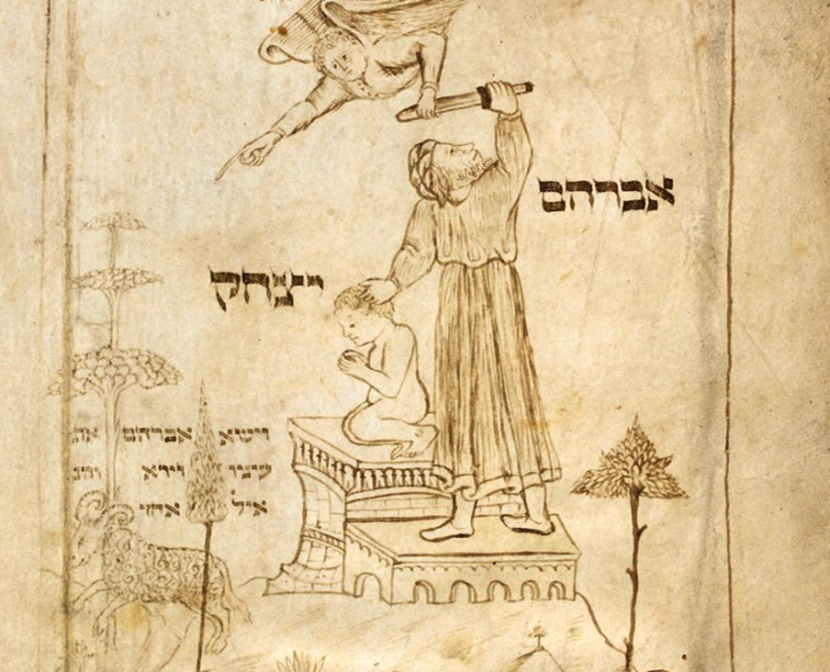 אברהם
יצחק
וישא אברהם את
עיניו וירא
איל אחר